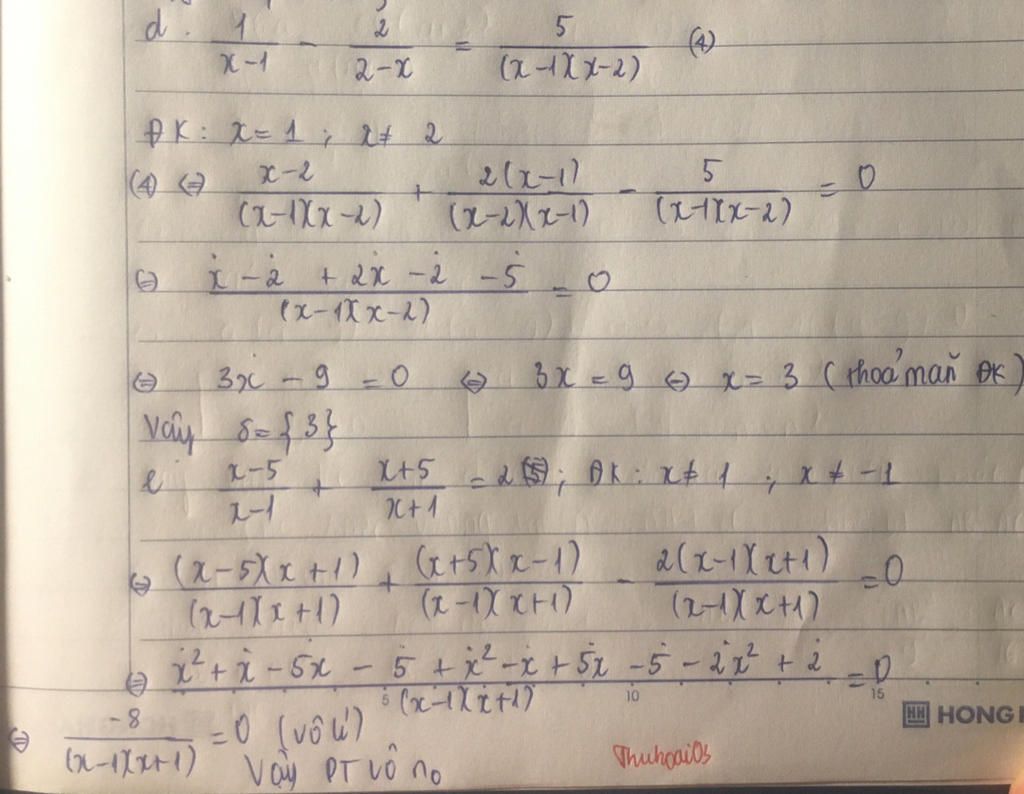 d. 1/(x-1) - 2/(2-x) = 5/((x-1)(x-2)) (4)
ĐK: x = 1 ; x ≠ 2
(4) ⇔ (x-2)/((x-1)(x-2)) + 2(x-1)/((x-2)(x-1)) - 5/((x-1)(x-2)) = 0
⇔ (x - 2 + 2x - 2 - 5)/((x-1)(x-2)) = 0
⇔ 3x - 9 = 0 ⇔ 3x = 9 ⇔ x = 3 (thoả mãn ĐK)
Vậy S = {3}
e (x-5)/(x-1) + (x+5)/(x+1) = 2 (5) ; ĐK: x ≠ 1 ; x ≠ -1
⇔ (x-5)(x+1)/((x-1)(x+1)) + (x+5)(x-1)/((x-1)(x+1)) - 2(x-1)(x+1)/((x-1)(x+1)) = 0
⇔ (x² + x - 5x - 5 + x² - x + 5x - 5 - 2x² + 2)/((x-1)(x+1)) = 0
5 10 15
⇔ -8/((x-1)(x+1)) = 0 (vô lí)
HH HONG
Vậy PT vô no
Thuhoai0s